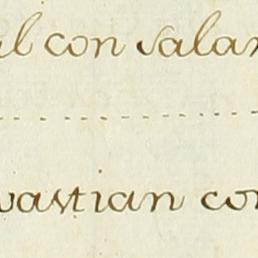 al con salar
vastian con